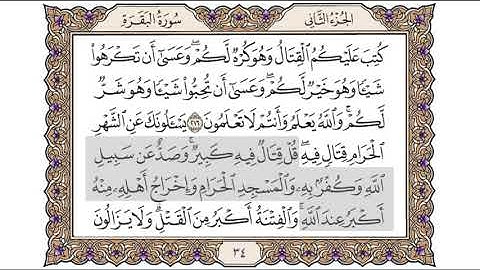 الجزء الثاني
سورة البقرة
كُتِبَ عَلَيْكُمُ الْقِتَالُ وَهُوَ كُرْهٌ لَّكُمْ ۖ وَعَسَىٰ أَن تَكْرَهُوا
شَيْئًا وَهُوَ خَيْرٌ لَّكُمْ ۖ وَعَسَىٰ أَن تُحِبُّوا شَيْئًا وَهُوَ شَرٌّ
لَّكُمْ ۗ وَاللَّهُ يَعْلَمُ وَأَنتُمْ لَا تَعْلَمُونَ ٢١٦ يَسْأَلُونَكَ عَنِ الشَّهْرِ
الْحَرَامِ قِتَالٍ فِيهِ ۖ قُلْ قِتَالٌ فِيهِ كَبِيرٌ ۖ وَصَدٌّ عَن سَبِيلِ
اللَّهِ وَكُفْرٌ بِهِ وَالْمَسْجِدِ الْحَرَامِ وَإِخْرَاجُ أَهْلِهِ مِنْهُ
أَكْبَرُ عِندَ اللَّهِ ۚ وَالْفِتْنَةُ أَكْبَرُ مِنَ الْقَتْلِ ۗ وَلَا يَزَالُونَ
٣٤